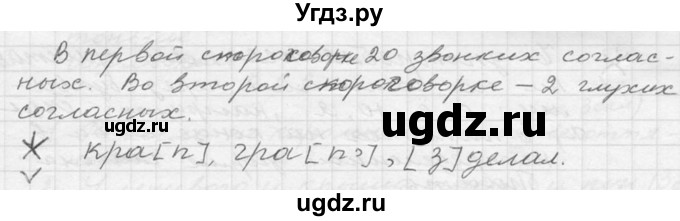 Угдз.ру
В первой скороговорке 20 звонких соглас-
ных. Во второй скороговорке – 2 глухих
согласных.
угдз.ру угдз.ру
кра[п], гра[п'], [з]делал.
угдз.ру